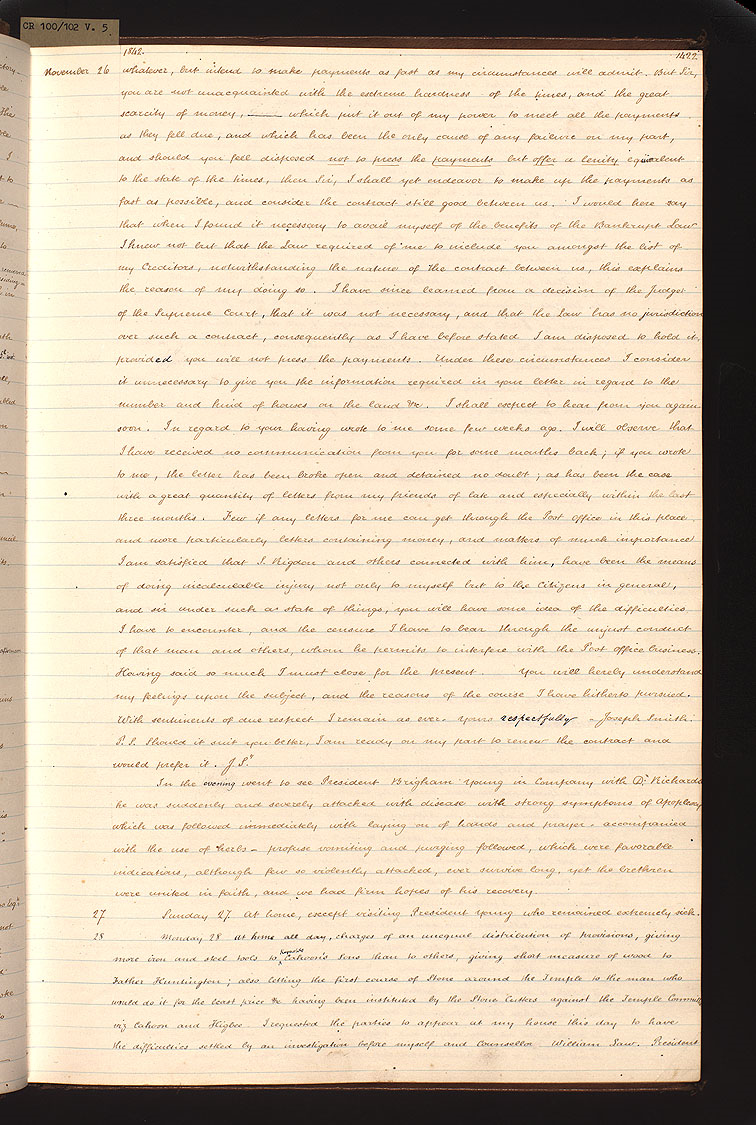 CR 100/102 V. 5
1842. 1422
November 26 whatever, but intend to make payments as fast as my circumstances will admit. But Sir,
you are not unacquainted with the extreme hardness of the times, and the great
scarcity of money, —— which put it out of my power to meet all the payments
as they fell due, and which has been the only cause of any failure on my part,
and should you feel disposed not to press the payments but offer a lenity equivalent
to the state of the times, then Sir, I shall yet endeavor to make up the payments as
fast as possible, and consider the contract still good between us. I would here say
that when I found it necessary to avail myself of the benefits of the Bankrupt Law
I knew not but that the Law required of me to include you amongst the list of
my Creditors, notwithstanding the nature of the contract between us, this explains
the reason of my doing so. I have since learned from a decision of the Judges
of the Supreme Court, that it was not necessary, and that the Law has no jurisdiction
over such a contract, consequently as I have before stated I am disposed to hold it,
provided you will not press the payments. Under these circumstances I consider
it unnecessary to give you the information required in your letter in regard to the
number and kind of houses on the land &c. I shall expect to hear from you again
soon. In regard to your having wrote to me some few weeks ago. I will observe that
I have received no communication from you for some months back; if you wrote
to me, the letter has been broke open and detained no doubt; as has been the case
with a great quantity of letters from my friends of late and especially within the last
three months. Few if any letters for me can get through the Post office in this place
and more particularly letters containing money, and matters of much importance
I am satisfied that S. Rigdon and others connected with him, have been the means
of doing incalculable injury not only to myself but to the Citizens in general,
and sir under such a state of things, you will have some idea of the difficulties
I have to encounter, and the censure I have to bear through the unjust conduct
of that man and others, whom he permits to interfere with the Post office business.
Having said so much I must close for the present. You will hereby understand
my feelings upon the subject, and the reasons of the course I have hitherto pursued.
With sentiments of due respect I remain as ever yours respectfully - Joseph Smith.
P.S. Should it suit you better, I am ready on my part to renew the contract and
would prefer it. J.S."
In the evening went to see President Brigham Young in Company with Dr. Richards
he was suddenly and severely attacked with disease with strong symptoms of Apoplexy
which was followed immediately with laying on of hands and prayer accompanied
with the use of herbs - profuse vomiting and purging followed, which were favorable
indications, although few so violently attacked, ever survive long, yet the brethren
were united in faith, and we had firm hopes of his recovery.
27 Sunday 27 At home, except visiting President Young who remained extremely sick.
28 Monday 28 At home all day, charges of an unequal distribution of provisions, giving
more iron and steel tools to Reynolds Cahoon's Sons than to others, giving short measure of wood to
Father Huntington; also letting the first course of Stone around the Temple to the man who
would do it for the least price &c having been instituted by the Stone Cutters against the Temple Committee
viz Cahoon and Higbee I requested the parties to appear at my house this day to have
the difficulties settled by an investigation before myself and Counsellor William Law. President